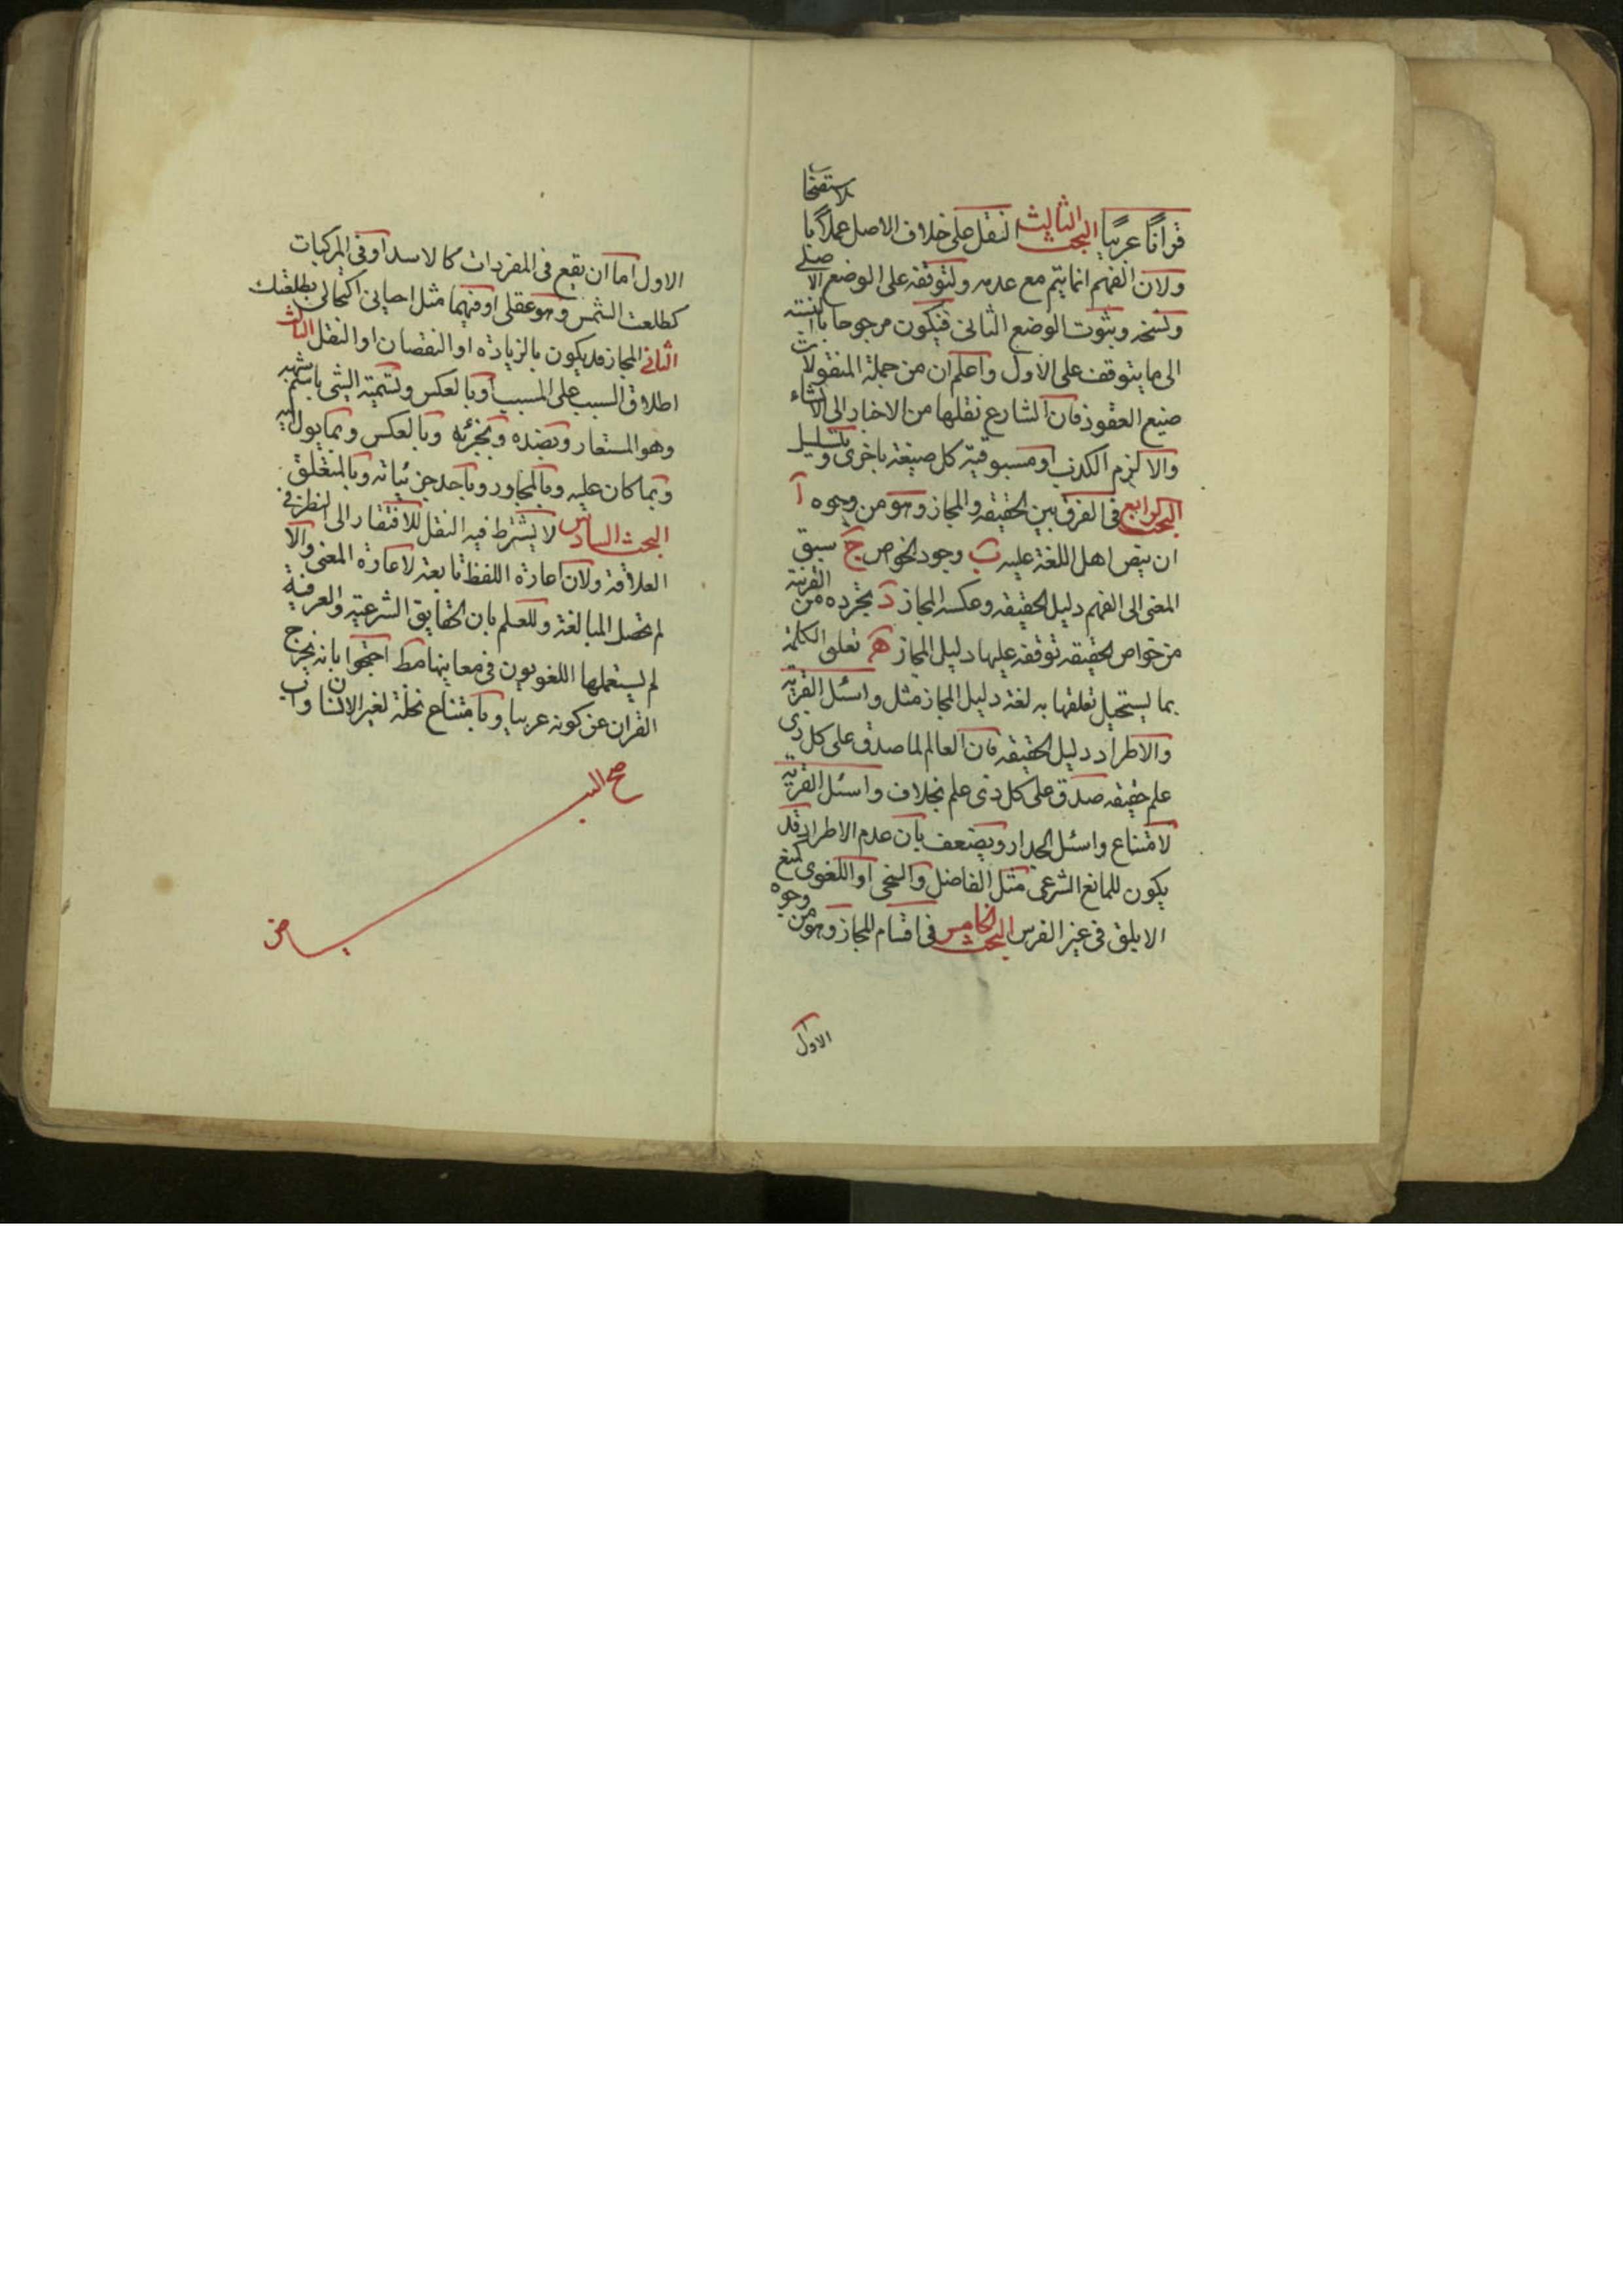 قرانًا عربيًا البحث الثالث النقل على خلاف الاصل عملا با
لاستصحاب
ولان الفهم انما يتم مع عدمه ولتوقفه على الوضع الاصلي
ونسخه وبثوت الوضع الثانى فيكون مرجوحا بالنسبة
الى ما يتوقف على الاول واعلم ان من جملة المنقولات
صيغ العقود فان الشارع نقلها من الاخبار الى الانشاء
والا لزم الكذب او مسبوقية كل صيغة باخرى ويتسلسل
البحث الرابع فى الفرق بين الحقيقه والمجاز وهو من وجوه آ
ان ينص اهل اللغة عليه ب وجود الخواص ج سبق
المعنى الى الفهم دليل الحقيقه وعكسه المجاز د تجرده من القرينة
من خواص الحقيقه توقفه عليها دليل المجاز ه تعلق الكلمة
بما يستحيل تعلقها به لغة دليل المجاز مثل واسئل القرية
والاطراد دليل الحقيقه فان العالم لما صدق على كل ذى
علم حقيقه صدق على كل ذى علم بخلاف واسئل القرية
لامتناع واسئل الجدار ويضعف بان عدم الاطراد قد
يكون للمانع الشرعى مثل الفاضل والسخى او اللغوى كمنع
الابلق فى غير الفرس البحث الخامس فى اقسام المجاز وهو من وجوه
الاول
الاول اما ان يقع فى المفردات كالاسد او فى المركبات
كطلعت الشمس وهو عقلى او فيهما مثل احيانى اكتحالى بطلعتك
الثانى المجاز قد يكون بالزيادة او النقصان او النقل الثالث
اطلاق السبب على المسبب او بالعكس وتسمية الشى باسم شبهه
وهو المستعار وبضده وبجزئه وبالعكس وبما يول اليه
وبما كان عليه وبالمجاور وباحد جزئياته وبالمتعلق
البحث السادس لا يشترط فيه النقل للافتقار الى النظر فى
العلاقة ولان اعارة اللفظ تابعة لاعارة المعنى والا
لم تحصل المبالغة وللعلم بان الحقايق الشرعية والعرفية
لم يستعملها اللغويون فى معاينها قط احتجوا بانه يخرج
القران عن كونه عربيا وبامتناع نخلة لغير الانسان واب
صح البـيـاض